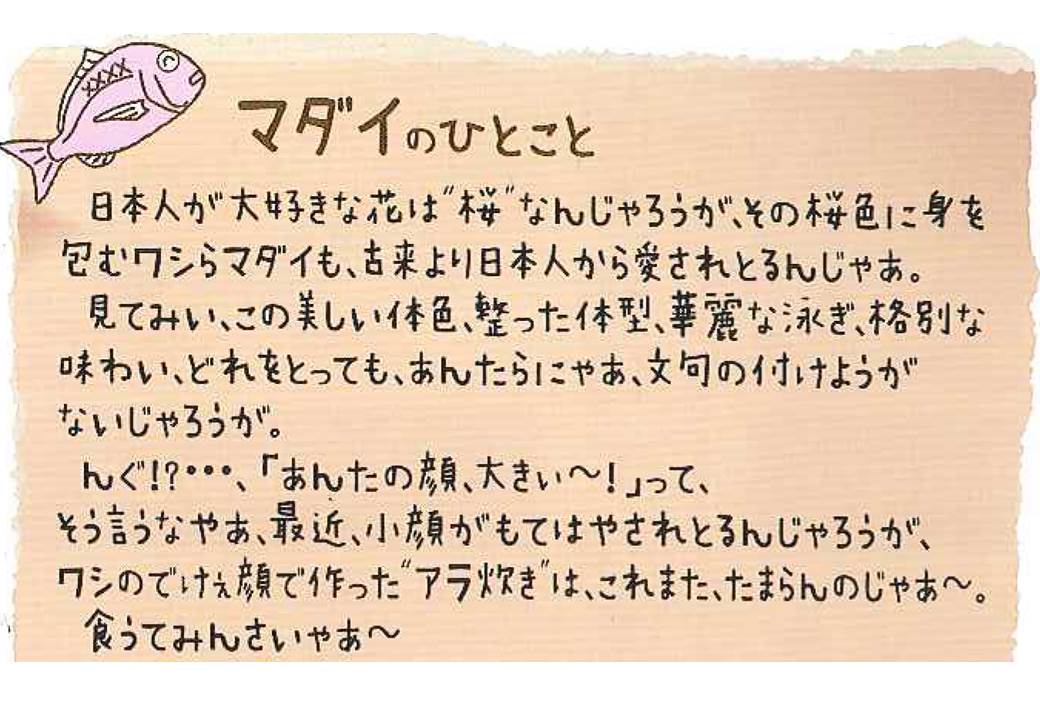 マダイのひとこと
日本人が大好きな花は"桜"なんじゃろうが、その桜色に身を
包むワシらマダイも、古来より日本人から愛されとるんじゃあ。
見てみい、この美しい体色、整った体型、華麗な泳ぎ、格別な
味わい、どれをとっても、あんたらにゃあ、文句の付けようが
ないじゃろうが。
んぐ!?・・・、「あんたの顔、大きい〜!」って、
そう言うなやあ、最近、小顔がもてはやされとるんじゃろうが、
ワシのでけぇ顔で作った"アラ炊き"は、これまた、たまらんのじゃあ〜。
食うてみんさいやあ〜